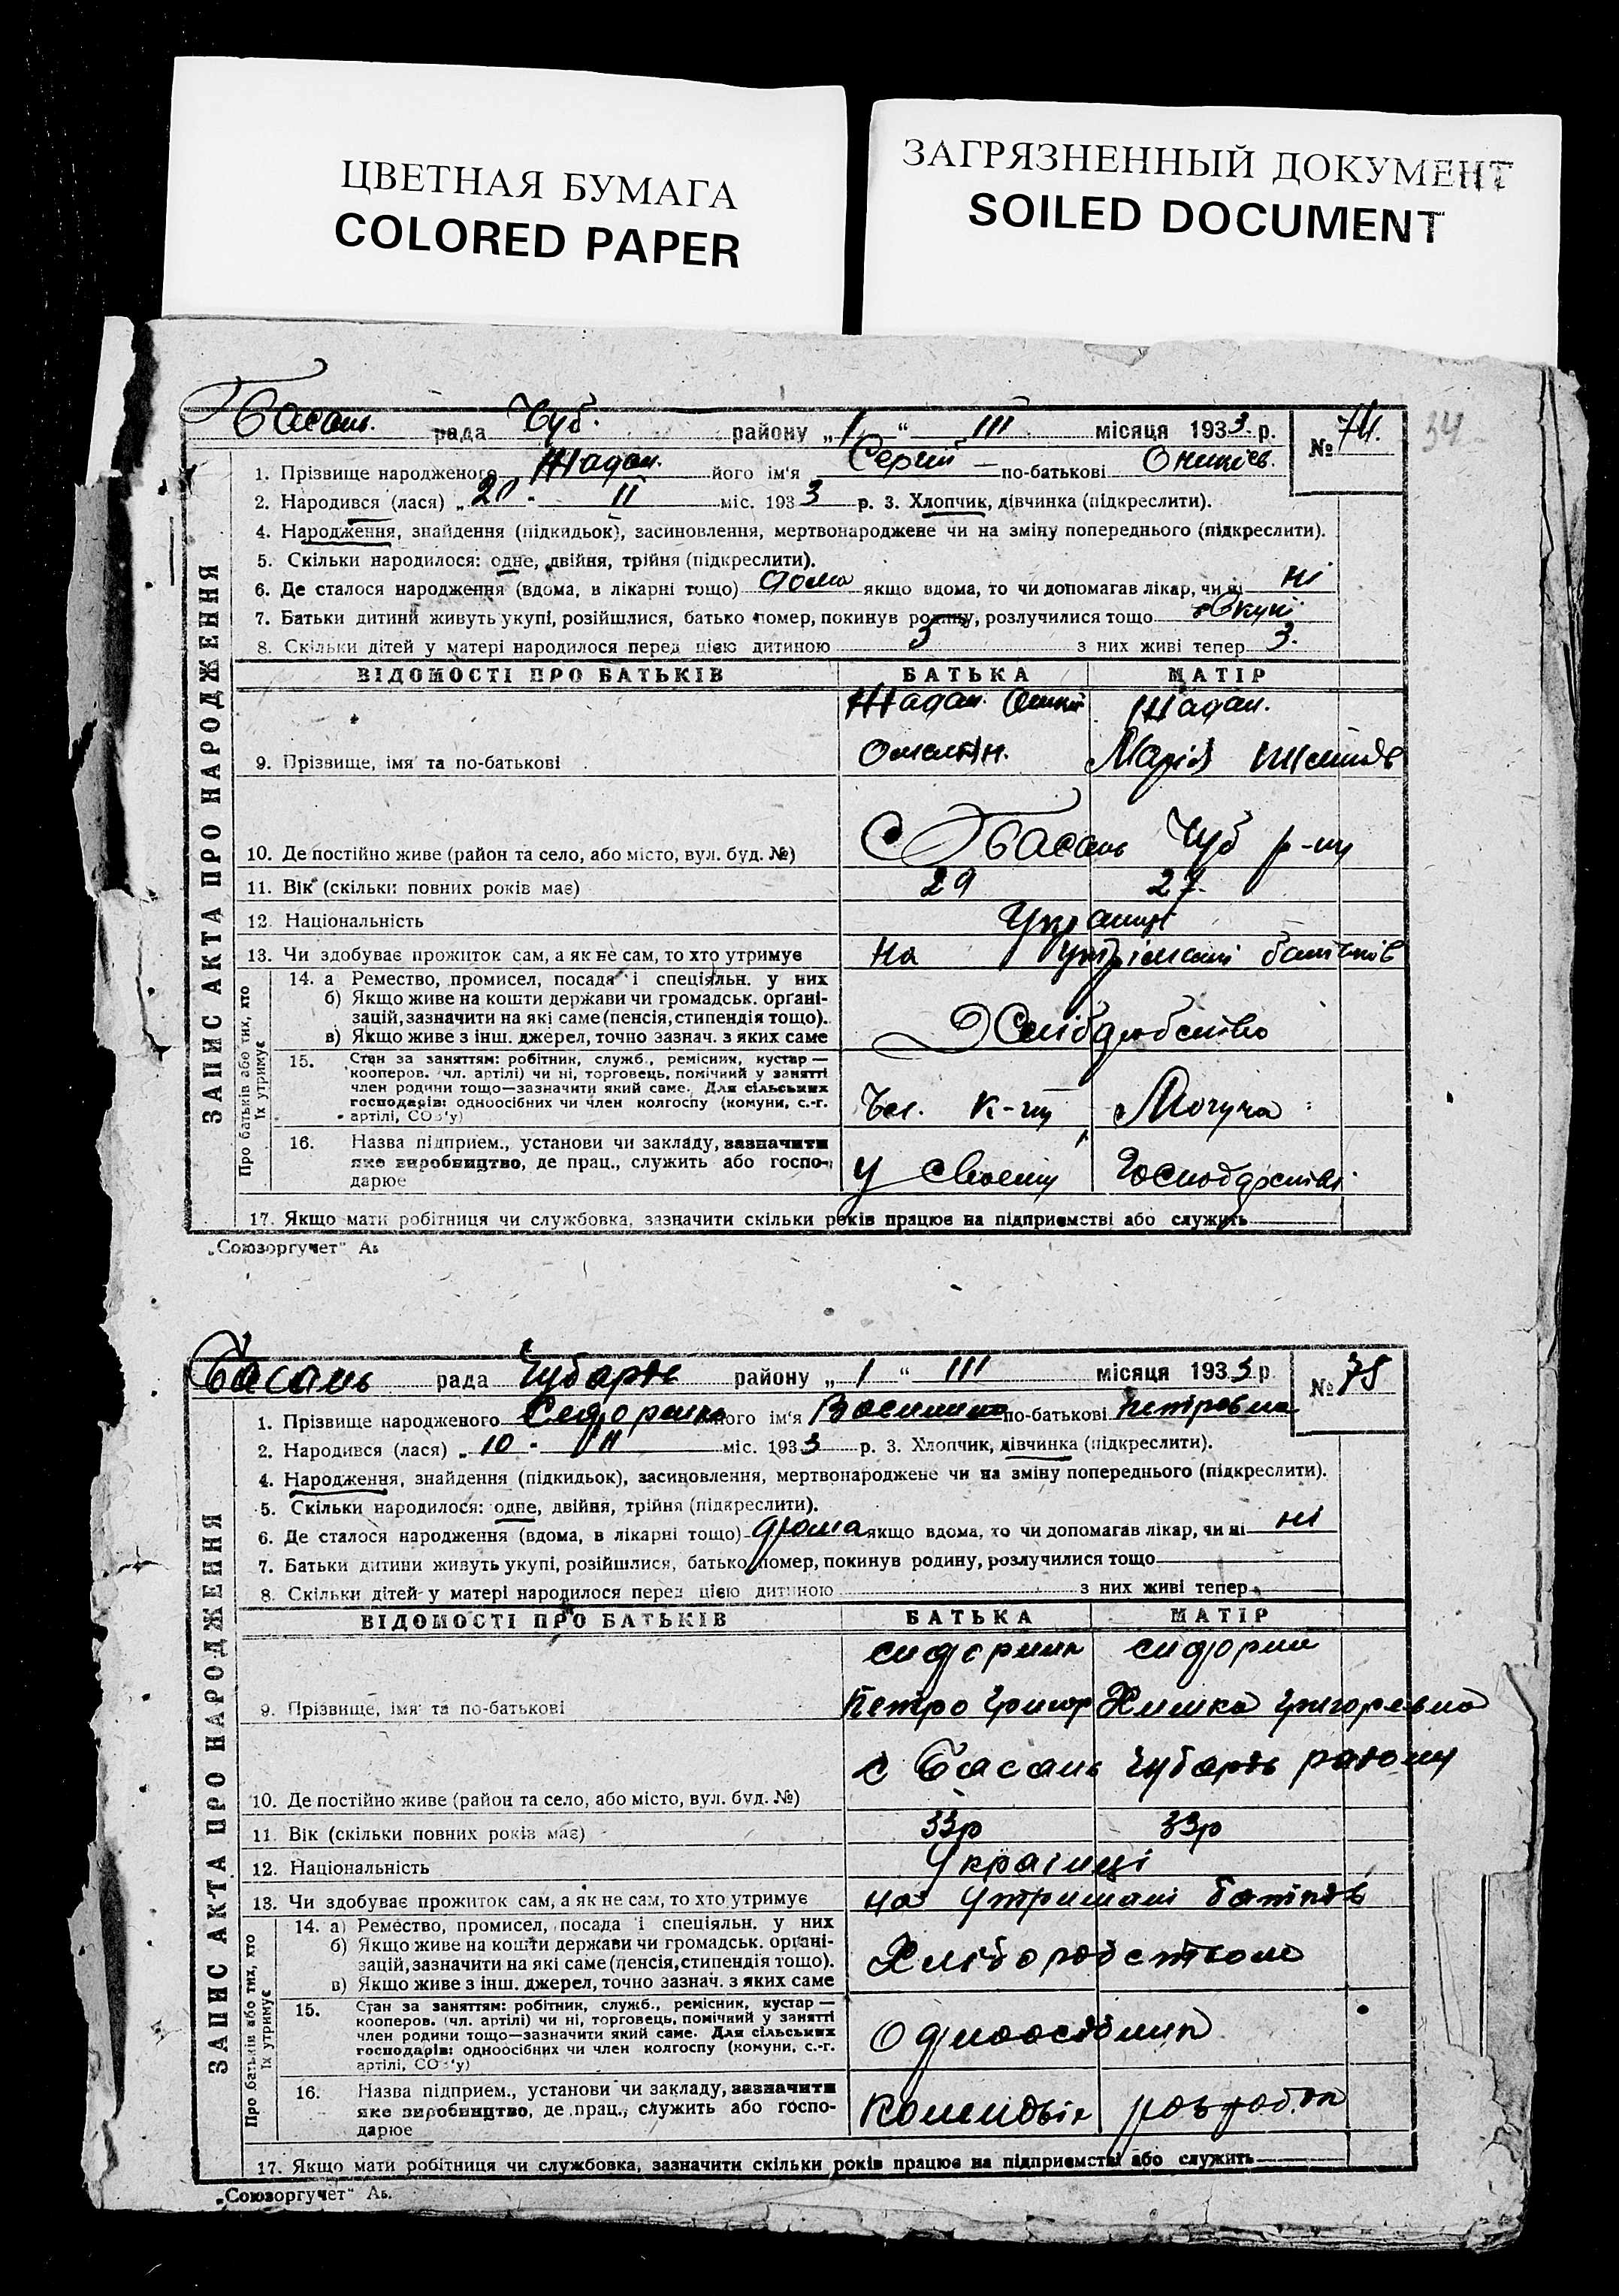 ЦВЕТНАЯ БУМАГА
COLORED PAPER
ЗАГРЯЗНЕННЫЙ ДОКУМЕНТ
SOILED DOCUMENT
34
Басань рада Чуб. району „ 1 “ III місяця 1933 р. № 74.
ЗАПИС АКТА ПРО НАРОДЖЕННЯ
1. Прізвище народженого Жадан. його ім'я Сергій — по-батькові Оникіев.
2. Народився (лася) „ 20 - II міс. 1933 р. 3. Хлопчик, дівчинка (підкреслити).
4. Народження, знайдення (підкидьок), засиновлення, мертвонароджене чи на зміну попереднього (підкреслити).
5. Скільки народилося: одне, двійня, трійня (підкреслити).
6. Де сталося народження (вдома, в лікарні тощо) дома якщо вдома, то чи допомагав лікар, чи ні ні
7. Батьки дитини живуть укупі, розійшлися, батько помер, покинув родину, розлучилися тощо Вкупі
8. Скільки дітей у матері народилося перед цією дитиною 3 з них живі тепер 3.
ВІДОМОСТІ ПРО БАТЬКІВ БАТЬКА МАТІР
Жадан. Жадан.
9. Прізвище, імя та по-батькові Омелян. Марія
10. Де постійно живе (район та село, або місто, вул. буд. №) С Басань Чуб р-ну
11. Вік (скільки повних років має) 29 27
12. Національність Українці
13. Чи здобуває прожиток сам, а як не сам, то хто утримує На утрімані батьків
Про батьків або тих, хто їх утримує
14. а) Ремество, промисел, посада і спеціяльн. у них
б) Якщо живе на кошти держави чи громадськ. органі-
зацій, зазначити на які саме (пенсія, стипендія тощо).
в) Якщо живе з інш. джерел, точно зазнач. з яких саме
Хлібдробство
15. Стан за заняттям: робітник, служб., ремісник, кустар —
кооперов. (чл. артілі) чи ні, торговець, помічний у занятті
член родини тощо—зазначити який саме. Для сільських
господарів: одноосібних чи член колгоспу (комуни, с.-г.
артілі, СОЗ'у)
Чл. к-пу
16. Назва підприем., установи чи закладу, зазначити
яке виробництво, де прац., служить або госпо-
дарює
У своему Господарстві
17. Якщо мати робітниця чи службовка, зазначити скільки років працює на підприємстві або служить
„Союзоргучет“ Ав
Басань рада Чубарів району „ 1 “ III місяця 1933 р. № 75
ЗАПИС АКТА ПРО НАРОДЖЕННЯ
1. Прізвище народженого його ім'я Василина по-батькові Петровна
2. Народився (лася) „ 10 - II міс. 1933 р. 3. Хлопчик, дівчинка (підкреслити).
4. Народження, знайдення (підкидьок), засиновлення, мертвонароджене чи на зміну попереднього (підкреслити).
5. Скільки народилося: одне, двійня, трійня (підкреслити).
6. Де сталося народження (вдома, в лікарні тощо) дома якщо вдома, то чи допомагав лікар, чи ні ні
7. Батьки дитини живуть укупі, розійшлися, батько помер, покинув родину, розлучилися тощо
8. Скільки дітей у матері народилося перед цією дитиною з них живі тепер
ВІДОМОСТІ ПРО БАТЬКІВ БАТЬКА МАТІР
9. Прізвище, імя та по-батькові Петро Григор Химка Григоревна
10. Де постійно живе (район та село, або місто, вул. буд. №) с Басань Чубарів району
11. Вік (скільки повних років має) 33р 33р
12. Національність Українці
13. Чи здобуває прожиток сам, а як не сам, то хто утримує на утримані батьків
Про батьків або тих, хто їх утримує
14. а) Ремество, промисел, посада і спеціяльн. у них
б) Якщо живе на кошти держави чи громадськ. органі-
зацій, зазначити на які саме (пенсія, стипендія тощо).
в) Якщо живе з інш. джерел, точно зазнач. з яких саме
Хліборобством
15. Стан за заняттям: робітник, служб., ремісник, кустар —
кооперов. (чл. артілі) чи ні, торговець, помічний у занятті
член родини тощо—зазначити який саме. Для сільських
господарів: одноосібних чи член колгоспу (комуни, с.-г.
артілі, СОЗ'у)
Одноосібник
16. Назва підприем., установи чи закладу, зазначити
яке виробництво, де прац., служить або госпо-
дарює
17. Якщо мати робітниця чи службовка, зазначити скільки років працює на підприємстві або служить
„Союзоргучет“ Ав.